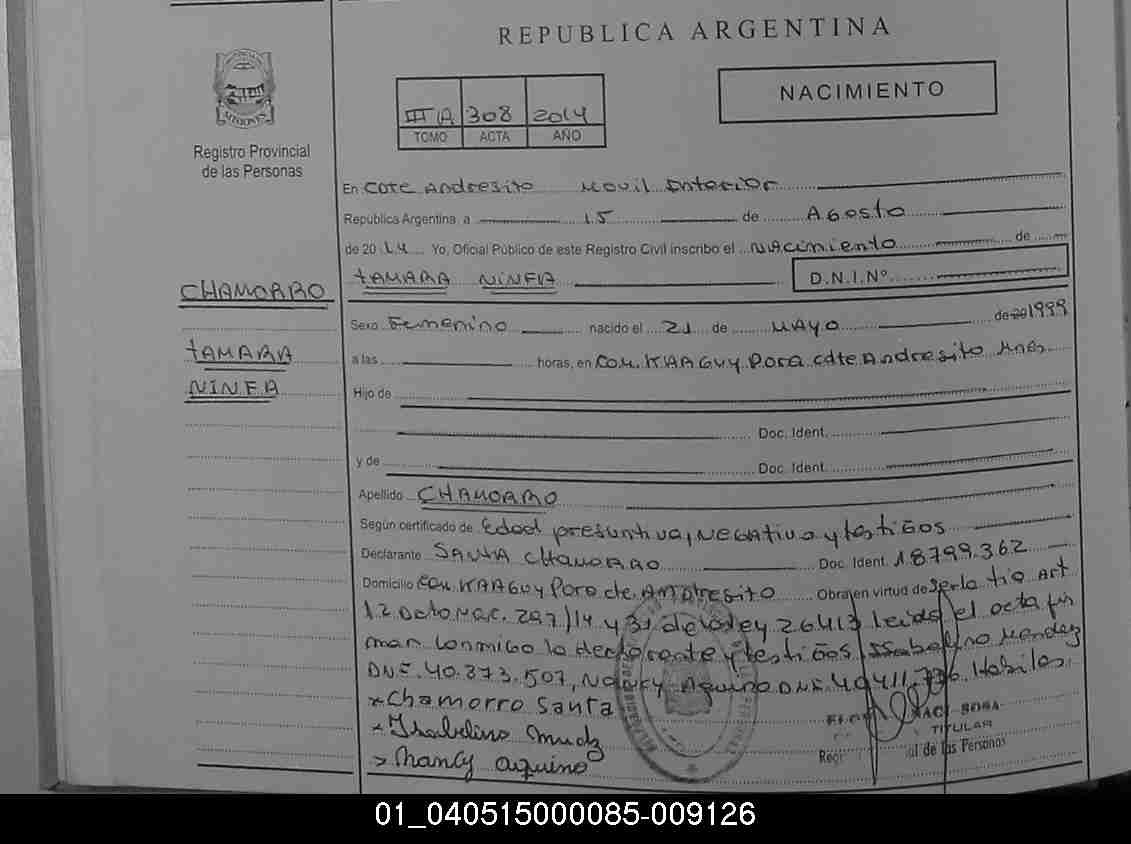 REPUBLICA ARGENTINA
MISIONES
Registro Provincial
de las Personas
III A 308 2014
TOMO ACTA AÑO
NACIMIENTO
En Cdte Andresito Movil Interior
República Argentina, a 15 de Agosto
de 2014 Yo, Oficial Público de este Registro Civil inscribo el Nacimiento de
TAMARA NINFA D.N.I.Nº
CHAMORRO
TAMARA
NINFA
Sexo Femenino nacido el 21 de MAYO de 20 1999
a las horas, en Com. KAAGUY Pora cdte Andresito Mnes.
Hijo de
Doc. Ident.
y de Doc. Ident.
Apellido CHAMORRO
Según certificado de Edad presuntiva, negativa y testigos
Declarante SANTA CHAMORRO Doc. Ident. 18799.362
Domicilio Com. KAAGUY Pora cdte. Andresito Obra en virtud de Ser la tia Art
12 Dcto Nac. 297/14 y 31 de la ley 26413 leida el acta fir
man conmigo la declarante y testigos Isabelino Mendez
DNI. 40.373.507, Nancy Aquino DNI. 40411.736. Habiles.
*Chamorro Santa
*Isabelino
>Nancy aquino
SOSA
TITULAR
de las Personas
01_040515000085-009126